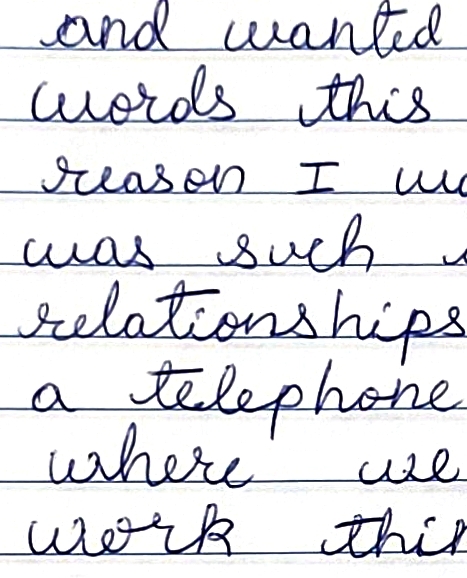 and wanted
words this
reason I
was such
relationships
a telephone
where we
work